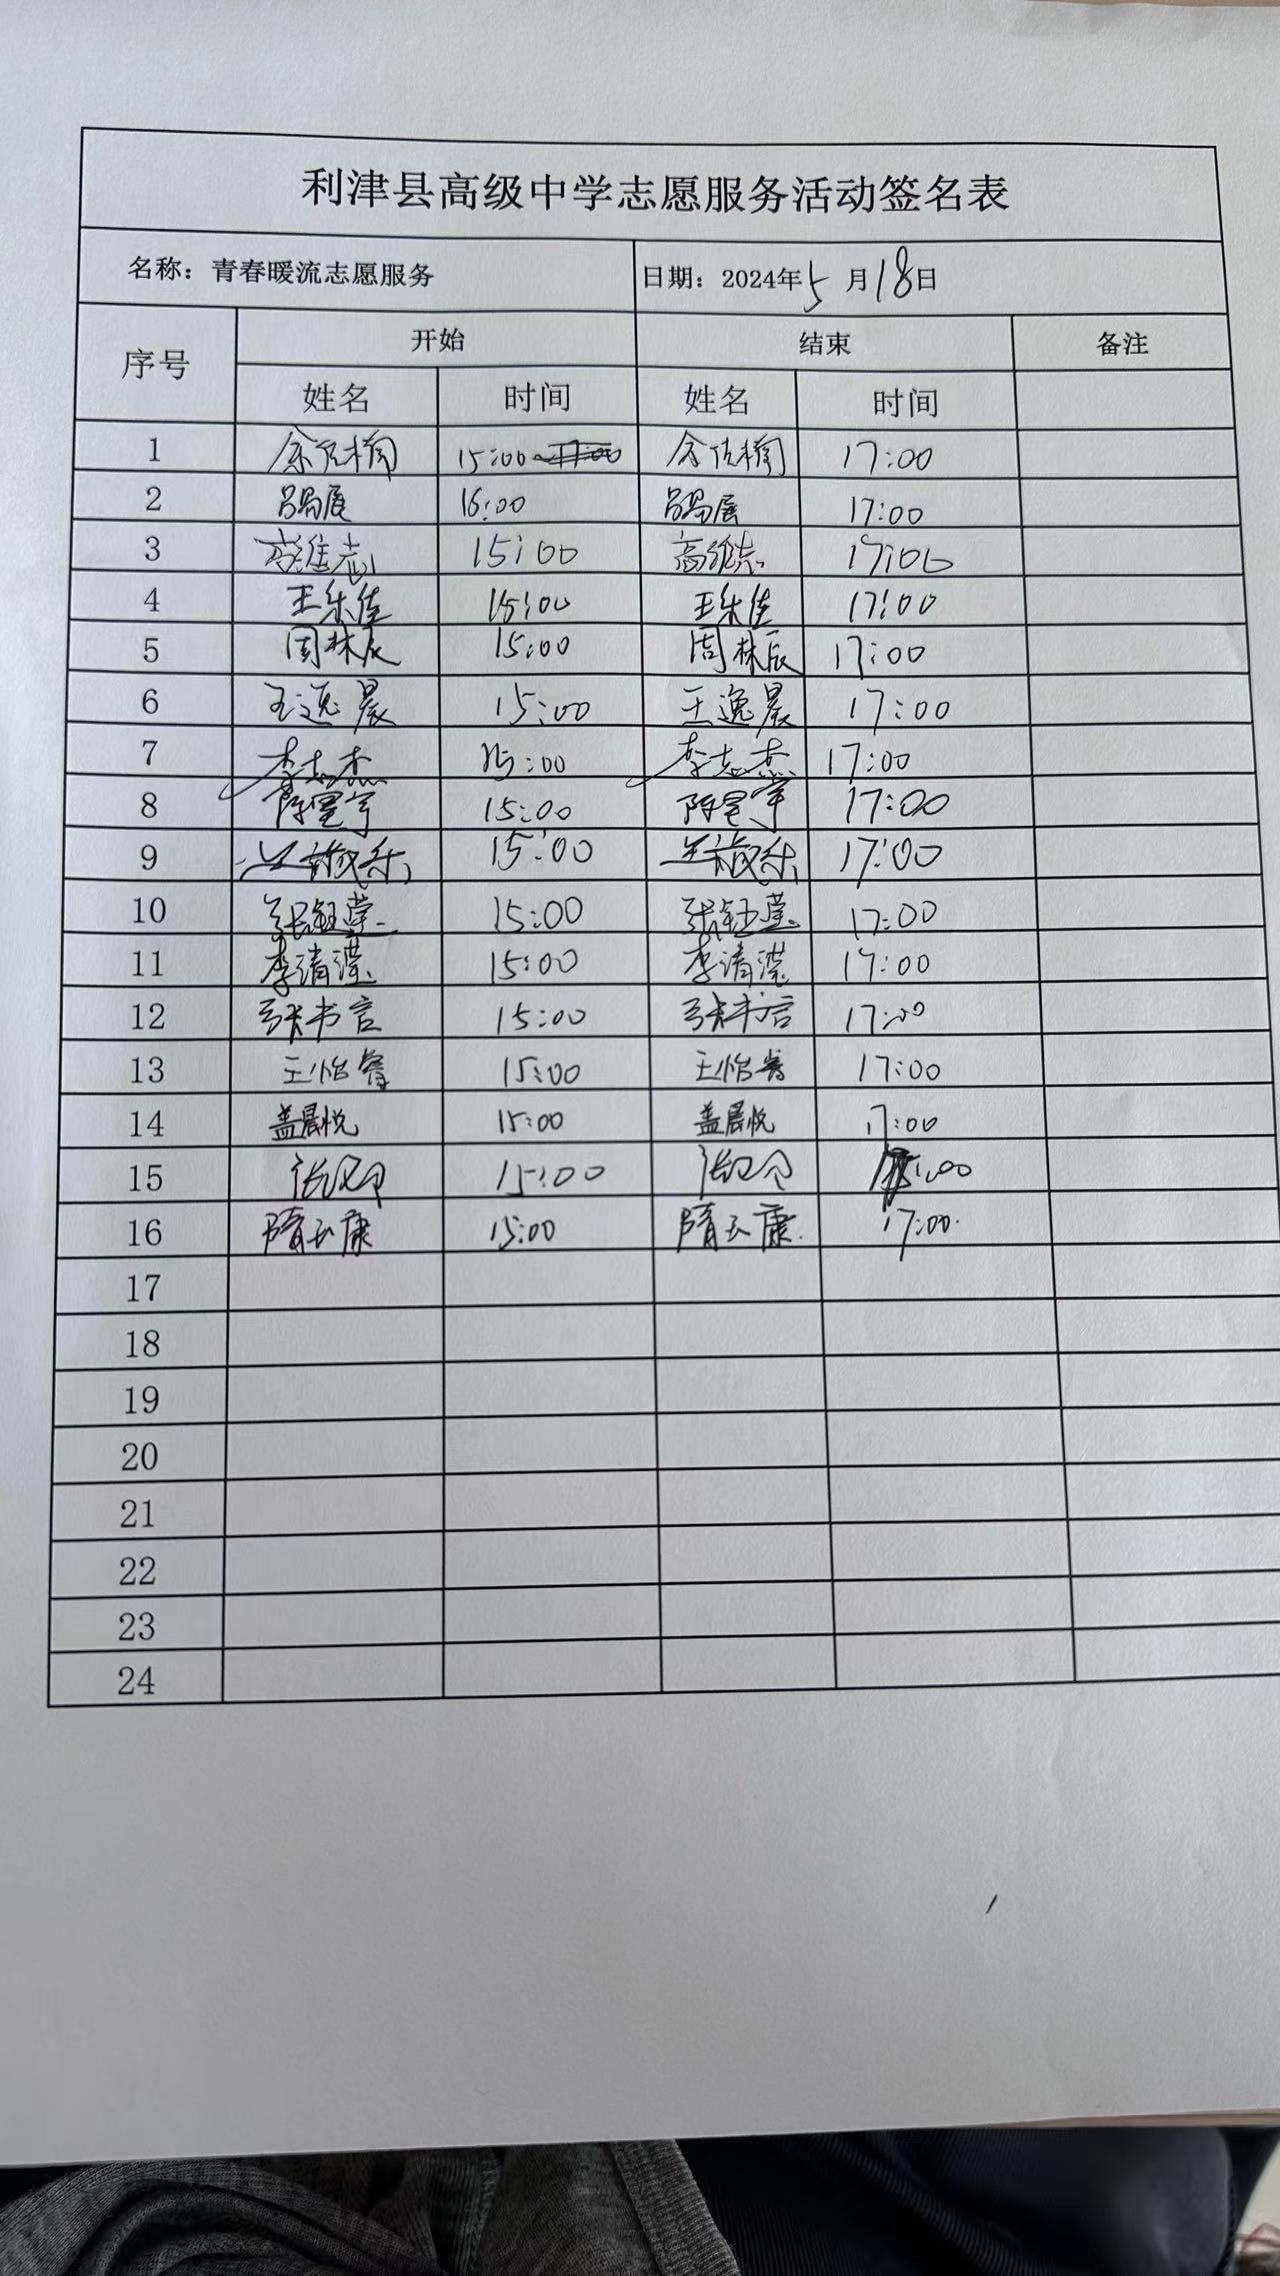 利津县高级中学志愿服务活动签名表
名称：青春暖流志愿服务 日期：2024年5月18日
序号 开始 结束 备注
姓名 时间 姓名 时间
1 15:00 17:00
2 16:00 17:00
3 高维志 15:00 高维志 17:00
4 王乐佳 15:00 王乐佳 17:00
5 周林辰 15:00 周林辰 17:00
6 王逸晨 15:00 王逸晨 17:00
7 李志杰 15:00 李志杰 17:00
8 15:00 17:00
9 15:00 17:00
10 张钰莹 15:00 张钰莹 17:00
11 李清滢 15:00 李清滢 17:00
12 张书言 15:00 张书言 17:00
13 王怡睿 15:00 王怡睿 17:00
14 盖晨悦 15:00 盖晨悦 17:00
15 15:00
16 隋玉康 15:00 隋玉康 17:00
17
18
19
20
21
22
23
24